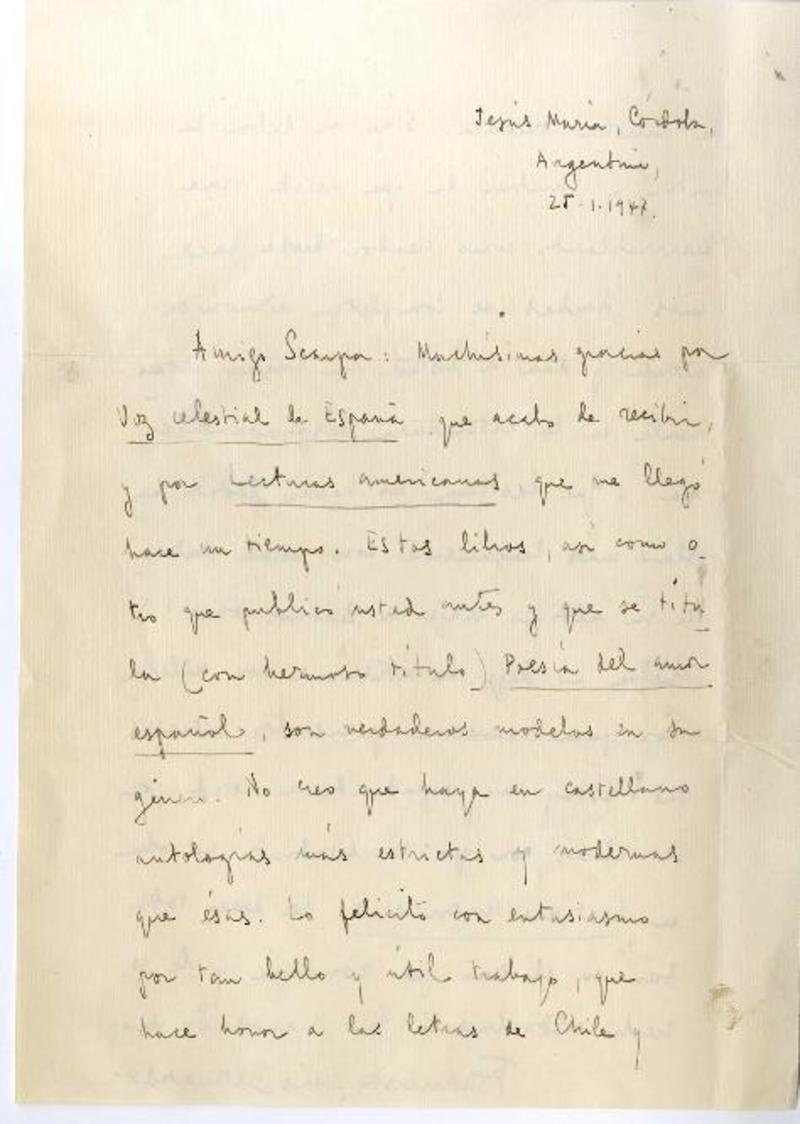 Jesús María, Córdoba,
Argentina,
25-1-1947.
Amigo Scarpa: Muchísimas gracias por
Voz celestial de España que acabo de recibir,
y por Lecturas americanas, que me llegó
hace un tiempo. Estos libros, así como o-
tro que publicó usted antes y que se titu-
la (con hermoso título) Poesía del amor
español, son verdaderos modelos en su
género. No creo que haya en castellano
antologías más estrictas y modernas
que ésas. Lo felicito con entusiasmo
por tan bello y útil trabajo, que
hace honor a las letras de Chile y